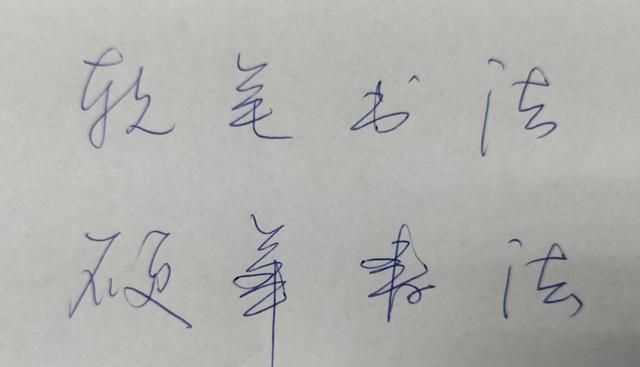 软笔书法
硬筆書法